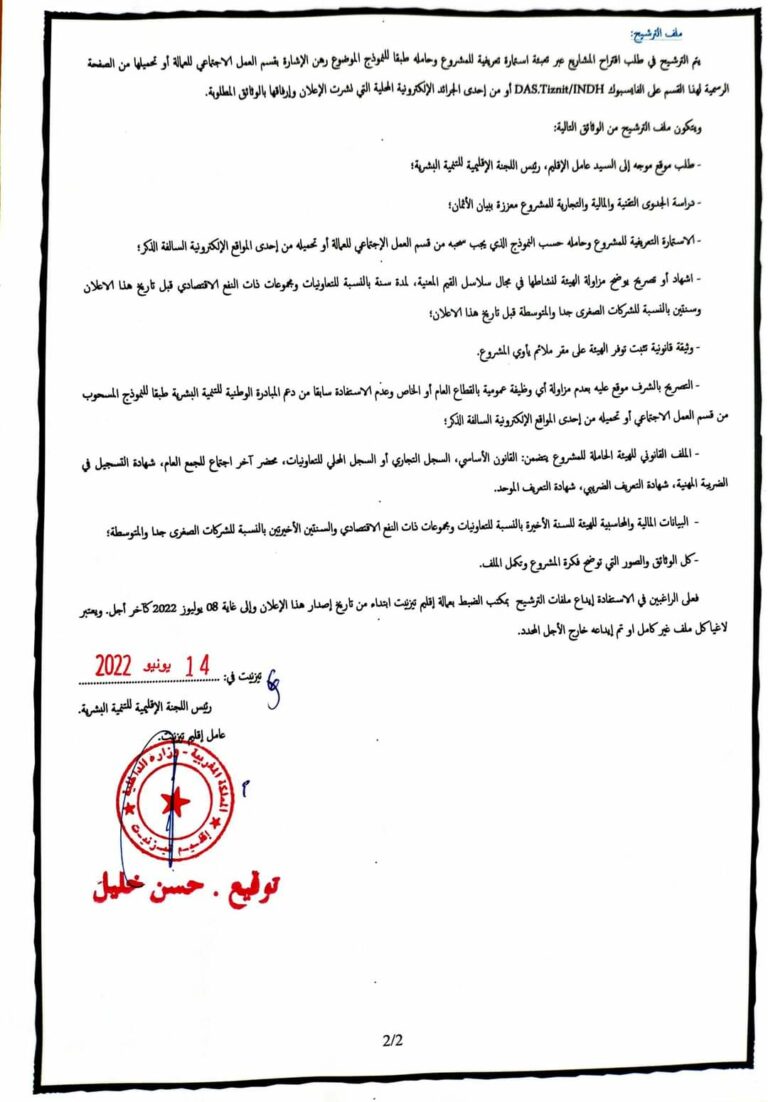 ملف الترشيح:
يتم الترشيح في طلب اقتراح المشاريع عبر تعبئة استمارة تعريفية للمشروع وحامله طبقا للنموذج الموضوع رهن الإشارة بقسم العمل الاجتماعي للعمالة أو تحميلها من الصفحة
الرسمية لهذا القسم على الفايسبوك DAS.Tiznit/INDH أو من إحدى الجرائد الإلكترونية المحلية التي نشرت الإعلان وإرفاقها بالوثائق المطلوبة.
ويتكون ملف الترشيح من الوثائق التالية:
- طلب موقع موجه إلى السيد عامل الإقليم، رئيس اللجنة الإقليمية للتنمية البشرية؛
- دراسة الجدوى التقنية والمالية والتجارية للمشروع معززة ببيان الأثمان؛
- الاستمارة التعريفية للمشروع وحامله حسب النموذج الذي يجب سحبه من قسم العمل الإجتماعي للعمالة أو تحميله من إحدى المواقع الإلكترونية السالفة الذكر؛
- اشهاد أو تصريح يوضح مزاولة الهيئة لنشاطها في مجال سلاسل القيم المعنية، لمدة سنة بالنسبة للتعاونيات ومجموعات ذات النفع الاقتصادي قبل تاريخ هذا الاعلان
وسنتين بالنسبة للشركات الصغرى جدا والمتوسطة قبل تاريخ هذا الاعلان؛
- وثيقة قانونية تثبت توفر الهيئة على مقر ملائم يأوي المشروع.
- التصريح بالشرف موقع عليه بعدم مزاولة أي وظيفة عمومية بالقطاع العام أو الخاص وعدم الاستفادة سابقا من دعم المبادرة الوطنية للتنمية البشرية طبقا للنموذج المسحوب
من قسم العمل الاجتماعي أو تحميله من إحدى المواقع الإلكترونية السالفة الذكر؛
- الملف القانوني للهيئة الحاملة للمشروع يتضمن: القانون الأساسي، السجل التجاري أو السجل المحلي للتعاونيات، محضر آخر اجتماع للجمع العام، شهادة التسجيل في
الضريبة المهنية، شهادة التعريف الضريبي، شهادة التعريف الموحد.
- البيانات المالية والمحاسبية للهيئة للسنة الأخيرة بالنسبة للتعاونيات ومجموعات ذات النفع الاقتصادي والسنتين الأخيرتين بالنسبة للشركات الصغرى جدا والمتوسطة؛
-كل الوثائق والصور التي توضح فكرة المشروع وتكمل الملف.
فعلى الراغبين في الاستفادة إيداع ملفات الترشيح بمكتب الضبط بعمالة إقليم تيزنيت ابتداء من تاريخ إصدار هذا الإعلان وإلى غاية 08 يوليوز 2022 كآخر أجل. ويعتبر
لاغيا كل ملف غير كامل او تم إيداعه خارج الأجل المحدد.
تيزنيت في: 14 يونيو 2022
رئيس اللجنة الإقليمية للتنمية البشرية.
عامل إقليم تيزنيت.
المملكة المغربية - وزارة الداخلية
إقليم تيزنيت
توقيع . حسن خليل
2/2